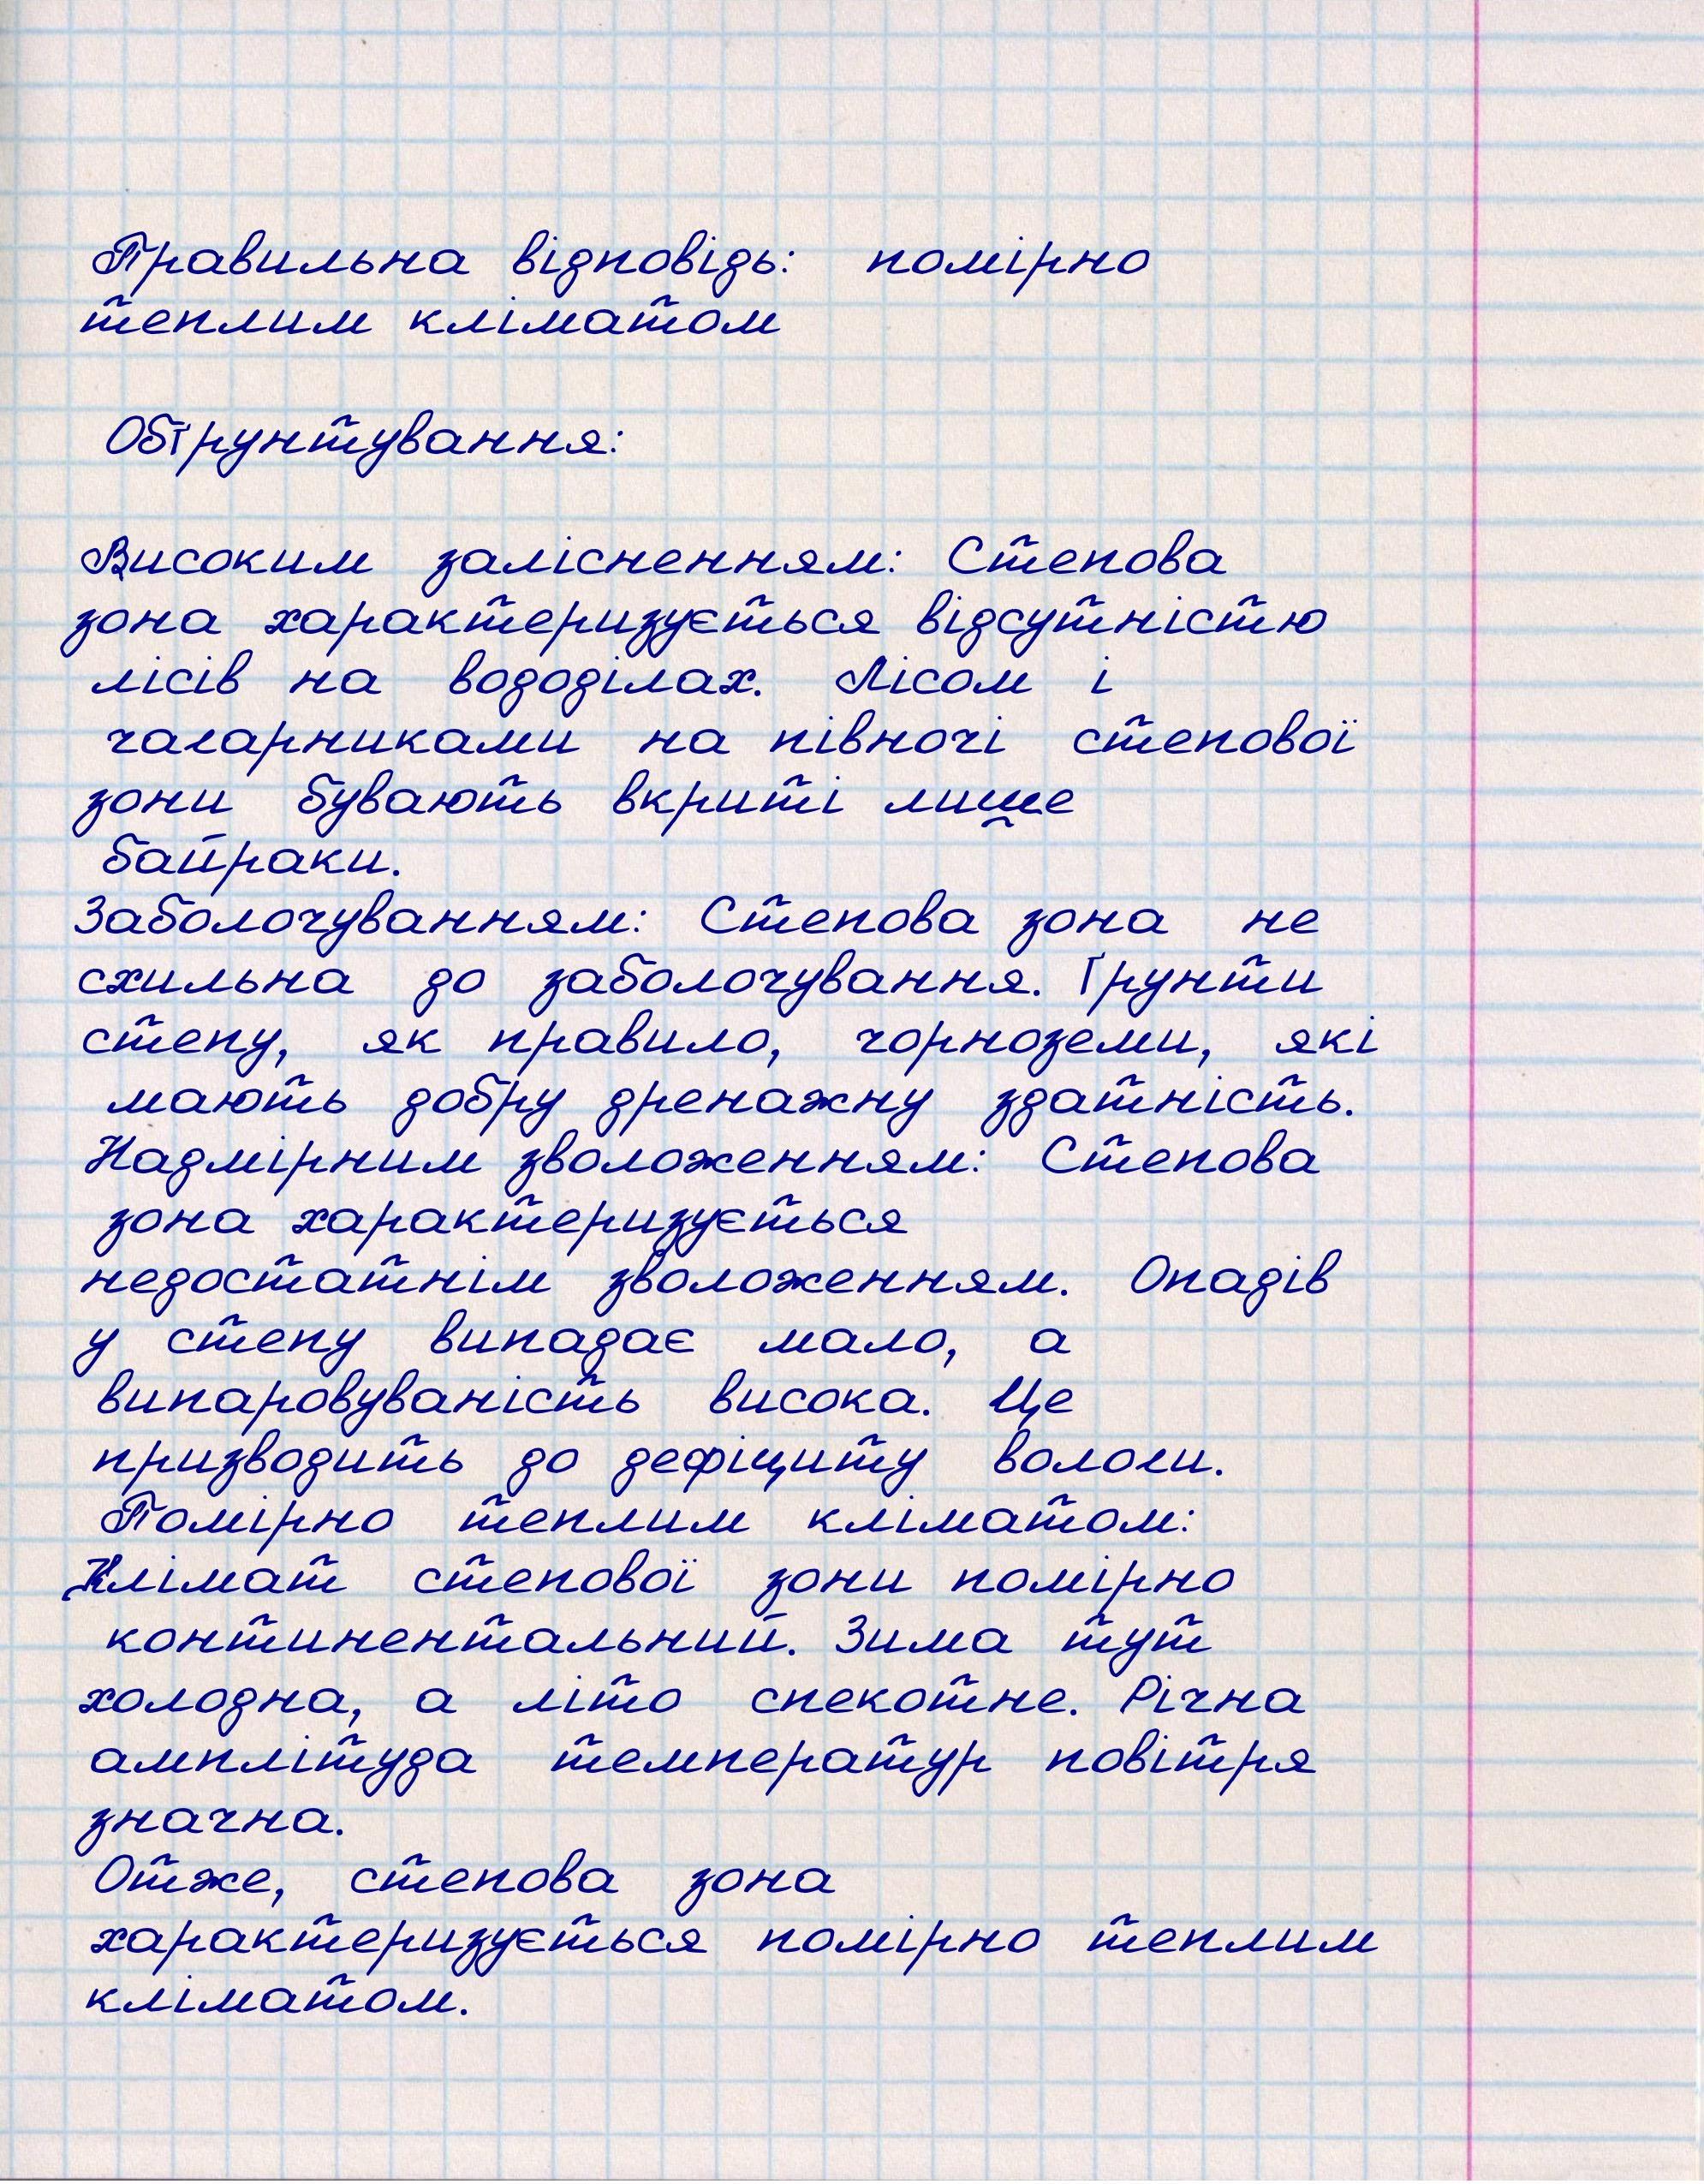 Правильна відповідь: помірно
теплим кліматом
Обґрунтування:
Високим залісненням: Степова
зона характеризується відсутністю
лісів на вододілах. Лісом і
чагарниками на півночі степової
зони бувають вкриті лише
байраки.
Заболочуванням: Степова зона не
схильна до заболочування. Ґрунти
степу, як правило, чорноземи, які
мають добру дренажну здатність.
Надмірним зволоженням: Степова
зона характеризується
недостатнім зволоженням. Опадів
у степу випадає мало, а
випаровуваність висока. Це
призводить до дефіциту вологи.
Помірно теплим кліматом:
Клімат степової зони помірно
континентальний. Зима тут
холодна, а літо спекотне. Річна
амплітуда температур повітря
значна.
Отже, степова зона
характеризується помірно теплим
кліматом.